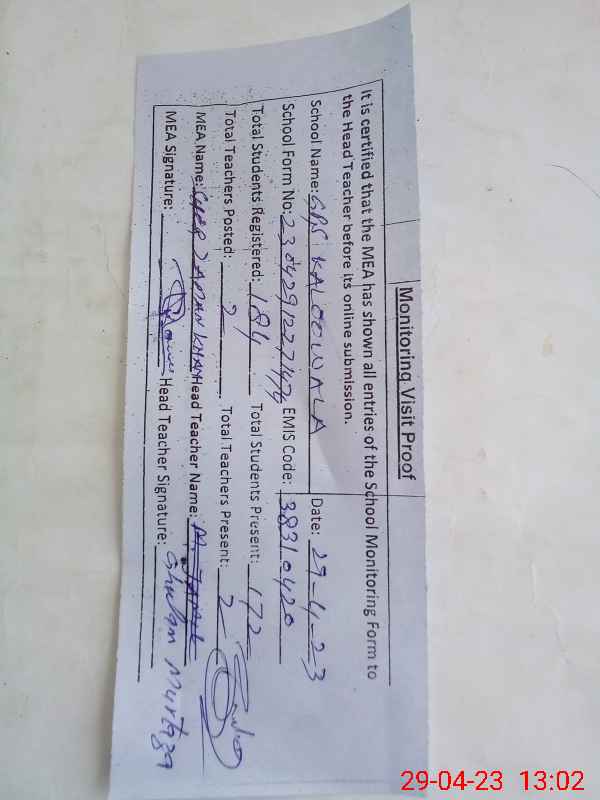 Monitoring Visit Proof
It is certified that the MEA has shown all entries of the School Monitoring Form to
the Head Teacher before its online submission.
School Name: GPS KALOOWALA Date: 29-4-23
School Form No: EMIS Code: 38310420
Total Students Registered: 184 Total Students Present: 172
Total Teachers Posted: 2 Total Teachers Present: 2
MEA Name: SHER ZAMAN KHAN Head Teacher Name:
MEA Signature: Head Teacher Signature: Ghulam Murtaza
29-04-23 13:02